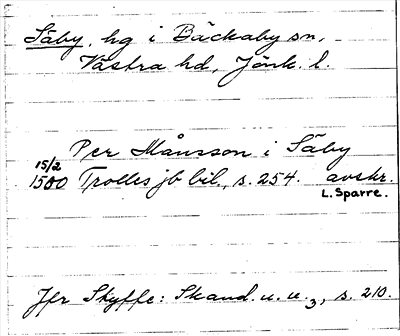 Säby, hg i Bäckaby sn,
Västra hd, Jönk. l.
Per Månsson i Säby
15/2
1500 Trolles jb bil., s. 254. avskr.
L. Sparre.
Jfr Styffe: Skand. u. u. 3, s. 210.